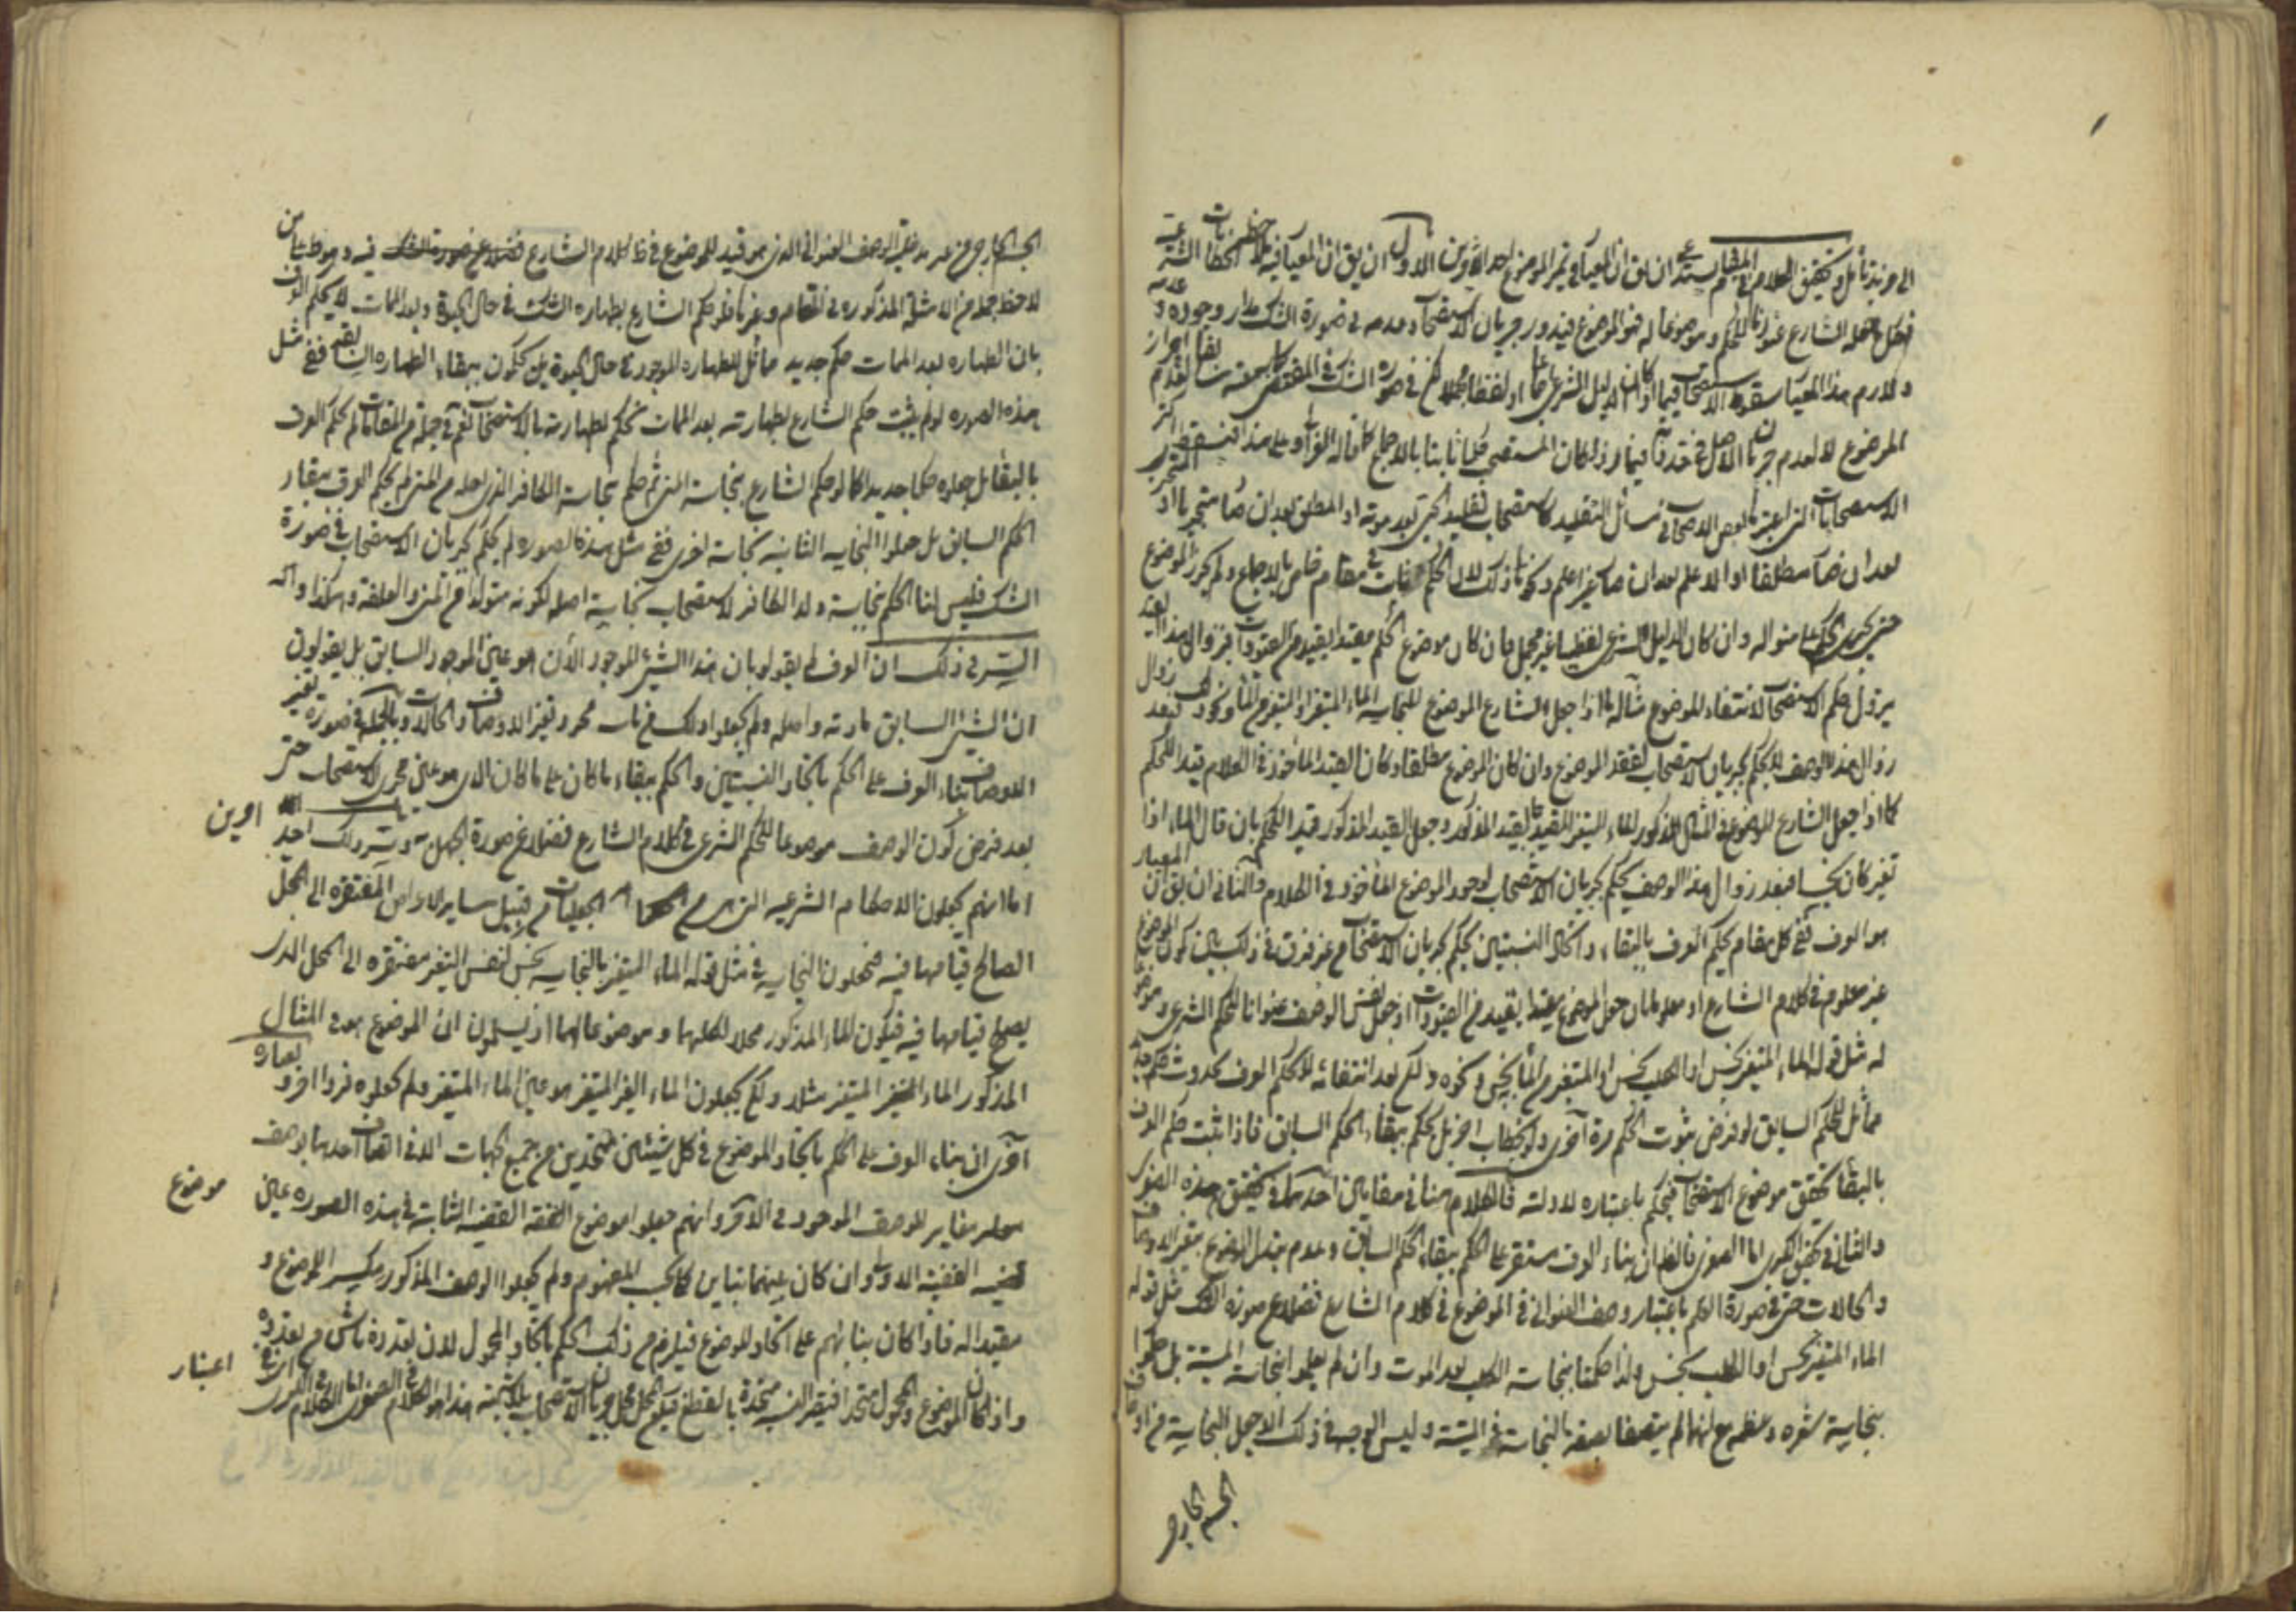 الى مزيد تأمل وتحقيق الكلام في المقام يستدعى ان يق ان المعيار في تميز الموضوع احد الامرين الاول ان يق ان المعيار فيه ملاحظة الخطابات الشرعية
فكل ما جعله الشارع عنوانا للحكم وموضوعا له فهو الموضوع فيدور جريان الاستصحاب وعدمه في صورة الشك مدار وجوده وعدمه
ولازم هذا المعيار سقوط الاستصحاب فيما اذا كان الدليل الشرعى اجماعا او لفظا مجملا لكن في صورة الشك في المقتضى لعدم احراز بقاء
الموضوع لا لعدم جريان الاصل فيما اذا كان المستصحب حكما ثابتا بالاجماع كما قاله الغزالى وعلى هذا فيسقط اكثر
الاستصحابات التى اعتبرها بعض الاصحاب في مسائل التقليد كاستصحاب تقليد الحى بعد موته او المطلق بعد ان صار متجزيا او المتجزى
بعد ان صار مطلقا او الاعلم بعد ان صار غير اعلم ونحو ذلك لان الحكم ثابت في مقام خاص بالاجماع ولم يحرز الموضوع
حتى يجرى الحكم على منواله وان كان الدليل الشرعى لفظيا غير مجمل فان كان موضوع الحكم مقيدا بقيد من القيود فبزوال هذا القيد
يزول حكم الاستصحاب لانتفاء الموضوع مثاله ما اذا جعل الشارع الموضوع للنجاسة الماء المتغير او المتغير من الماء ونحو ذلك فبعد زوال
زوال هذا الوصف لا يحكم بجريان الاستصحاب لفقد الموضوع وان كان الموضوع مطلقا وكان القيد المأخوذ في الكلام قيدا للحكم
كما اذا جعل الشارع الموضوع في المثال المذكور الماء الغير المقيد بالقيد المذكور وجعل القيد المذكور قيدا للحكم بان قال الماء اذا
تغير كان نجسا فبعد زوال هذا الوصف يحكم بجريان الاستصحاب لوجود الموضوع المأخوذ في الكلام والثانى ان يق ان المعيار
هو العرف ففى كل مقام يحكم العرف بالبقاء واتحاد النسبتين يحكم بجريان الاستصحاب من غير فرق في ذلك بين كون الموضوع
غير معلوم في كلام الشارع او معلوما بان جعل الموضوع مقيدا بقيد من القيودات او جعل نفس الوصف عنوانا للحكم الشرعى وموضوعا
له مثل قوله الماء المتغير نجس او الكلب نجس او المتغير من الماء نجس ونحوه ولكن بعد انتفائه لا يحكم العرف بحدوث حكم جديد
مماثل للحكم السابق لو فرض ثبوت الحكم مرة اخرى ولو بخطاب اخر بل يحكم ببقاء الحكم السابق فاذا ثبت حكم العرف
بالبقاء تحقق موضوع الاستصحاب فيحكم باعتباره لادلته فالكلام هنا في مقامين احدهما في تحقيق هذه الصغرى
والثانى في تحقيق الكبرى اما الصغرى فالظ ان بناء العرف مستقر على الحكم ببقاء الحكم السابق وعدم تبدل الموضوع بتغير الاوصاف
والحالات حتى في صورة العلم باعتبار وصف العنوانى في الموضوع في كلام الشارع فضلا عن صورة الشك مثل قوله
الماء المتغير نجس او الكلب نجس ولذا حكمنا بنجاسة الكلب بعد الموت وان لم يعلموا نجاسة الميتة بل حكموا
بنجاسة شعره وعظمه مع انهما لم يتصفا بصفة بالنجاسة في الميتة وليس الوجه في ذلك الا جعل النجاسة من اوصاف
الجسم الخارجى
الجسم الخارجى من غير مدخلية الوصف العنوانى الذى هو قيد للموضوع في ظ كلام الشارع فضلا عن صورة الشك فيه وهو ظ من
لاحظ جملة من الامثلة المذكورة في المقام وغيرها فلو حكم الشارع بطهارة الشئ في حال الحيوة وبعد الممات لا يحكم العرف
بان الطهارة بعد الممات حكم جديد مماثل للطهارة الموجودة في حال الحيوة بل يحكمون ببقاء الطهارة السابقة نعم ففى مثل
هذه الصورة لو لم يثبت حكم الشارع بطهارته بعد الممات نحكم بطهارته بالاستصحاب نعم في جملة من المقامات لم يحكم العرف
بالبقاء بل جعلوه حكما جديدا كما لو حكم الشارع بنجاسة المنى ثم حكم بنجاسة الكافر الذى اصله من المنى لم يحكم العرف ببقاء
الحكم السابق بل جعلوا النجاسة الثانية نجاسة اخرى ففى مثل هذه الصورة لم يحكم بجريان الاستصحاب في صورة
الشك فليس لنا الحكم بنجاسة ولد الكافر لاستصحاب نجاسة اصله لكونه متولدا من المنى والعلقة وهكذا
السر في ذلك ان العرف لم يقولوا بان هذا الشئ الموجود الان هو عين الموجود السابق بل يقولون
ان الشئ السابق مادته واصله ولم يجعلوا ذلك من باب مجرد تغير الاوصاف والحالات وبالجملة في صورة تغير
الاوصاف بناء العرف على الحكم باتحاد النسبتين والحكم ببقاء ما كان على ما كان الذى هو عين مجرى الاستصحاب حتى
بعد فرض كون الوصف موضوعا للحكم الشرعى في كلام الشارع فضلا عن صورة الجهل به وسر ذلك احد
امرين
اما انهم يجعلون الاحكام الشرعية التى هى من الجعليات من قبيل ساير الاعراض المفتقرة الى المحل
الصالح قيامها فيه فيجعلون النجاسة في مثل قوله الماء المتغير بالنجاسة نجس لنفس التغير مفتقرة الى المحل الذى
يصح قيامها فيه فيكون الماء المذكور محلا لكليهما وموضوعا لهما اذ يسلمون ان الموضوع هو في المثال
المذكور الماء المتغير مثلا ولكن يجعلون الماء الغير المتغير هو عين الماء المتغير ولم يجعلوه فردا اخر وبعبارة
اخرى ان بناء العرف على الحكم باتحاد الموضوع في كل شيئين متحدين من جميع الجهات الا في اتصاف احدهما بوصف
مغاير للوصف الموجود في الآخر وانهم جعلوا موضوع القضية الثابتة في هذه الصورة عين
موضوع
القضية الاولى وان كان بينهما تباين بحسب المفهوم ولم يجعلوا الوصف المذكور مكسرا للموضوع و
مقيدا له فاذا كان بنائهم على اتحاد الموضوع فيلزم من ذلك الحكم باتحاد المحمول لان تعدده ناش من تعدده
واذا كان الموضوع والمحمول متحدا فيصير النسبة متحدة
اعتبار